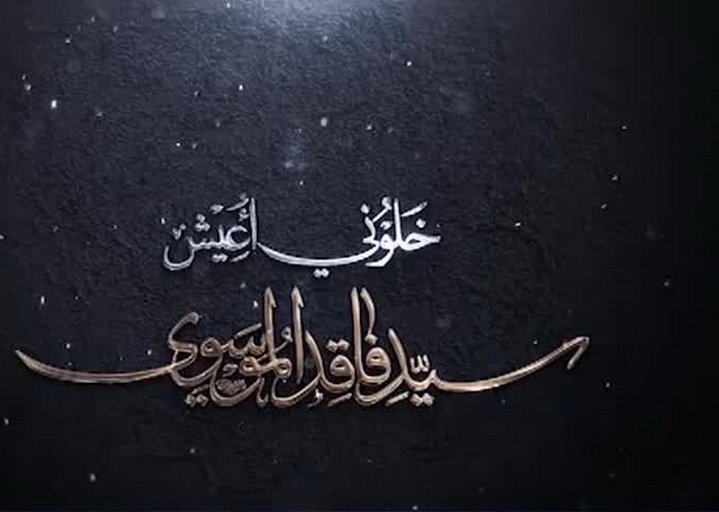 خَلَوُنِي أَعِيشْ
سيِّد فَاقِد المُوسَوي